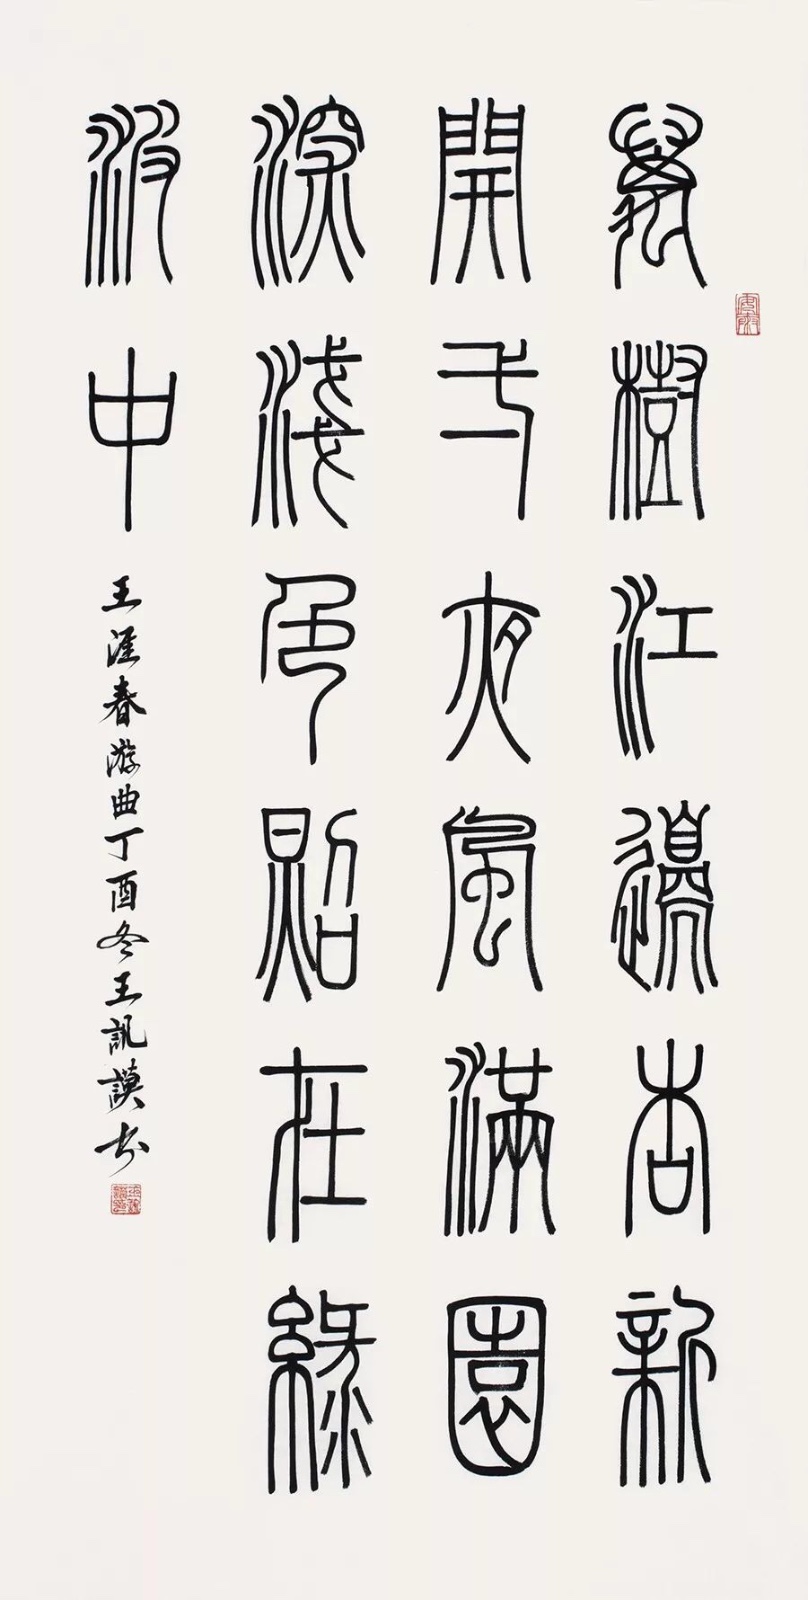 萬樹江邊杏新
開弌夜風滿園
深淺色照在綠
波中
王涯春游曲丁酉冬王訊謨书